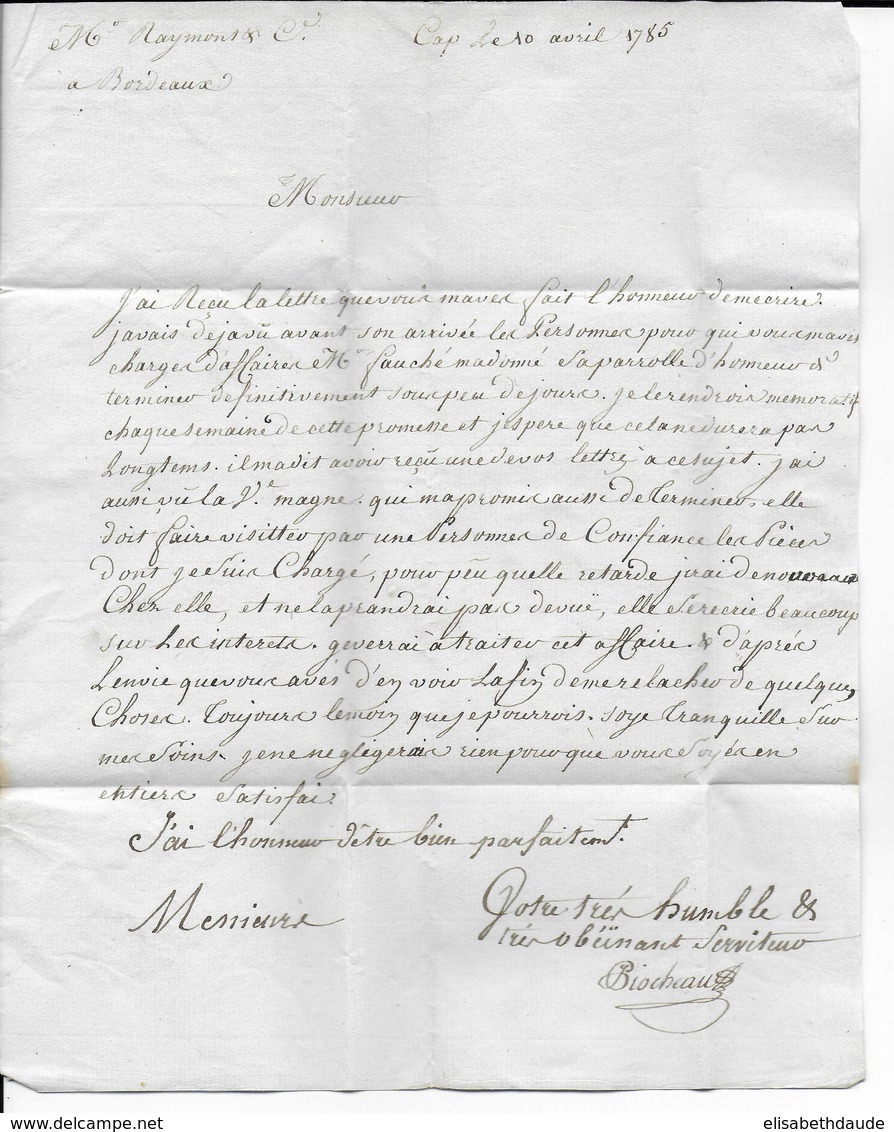 Mrs Raymond & Ce. Cap Le 10 avril 1785
a Bordeaux
Monsieur
J'ai Reçu la lettre que vous maves fait l'honneur de mecrire.
javais dejavû avant son arrivée les Personnes pour qui vous maves
charges d'affaires Mr fauché madonné sa parrolle d'honneur de
terminer definitivement sous peu de jours. je le rendrois memoratif
chaque semaine de cette promesse et jespere que cela ne durera pas
Longtems. il madit avoir reçu une de vos lettres a ce sujet. j'ai
aussi vû la Ve. magne. qui ma promis aussi de Terminer, elle
doit faire visitter par une Personnes de Confiance les Pièces
dont je suis Chargé, pour peu quelle retarde jirai de nouveau
Chez elle, et ne la prandrai pas de vuë, elle se recrie beaucoup
sur Les interets. je verrai à traiter cet affaire. & d'aprés
Lenvie que vous avés d'en voir La fin de me relacher de quelque
Choses. Toujours le moin que je pourrois. soye Tranquille sur
mes soins. je ne negligerais rien pour que vous soyés en
entiers satisfai.
J'ai l'honneur d'être bien parfaitemt.
Messieurs
Votre trés humble &
trés obéïssant Serviteur
Piocheau
elisabethdaude